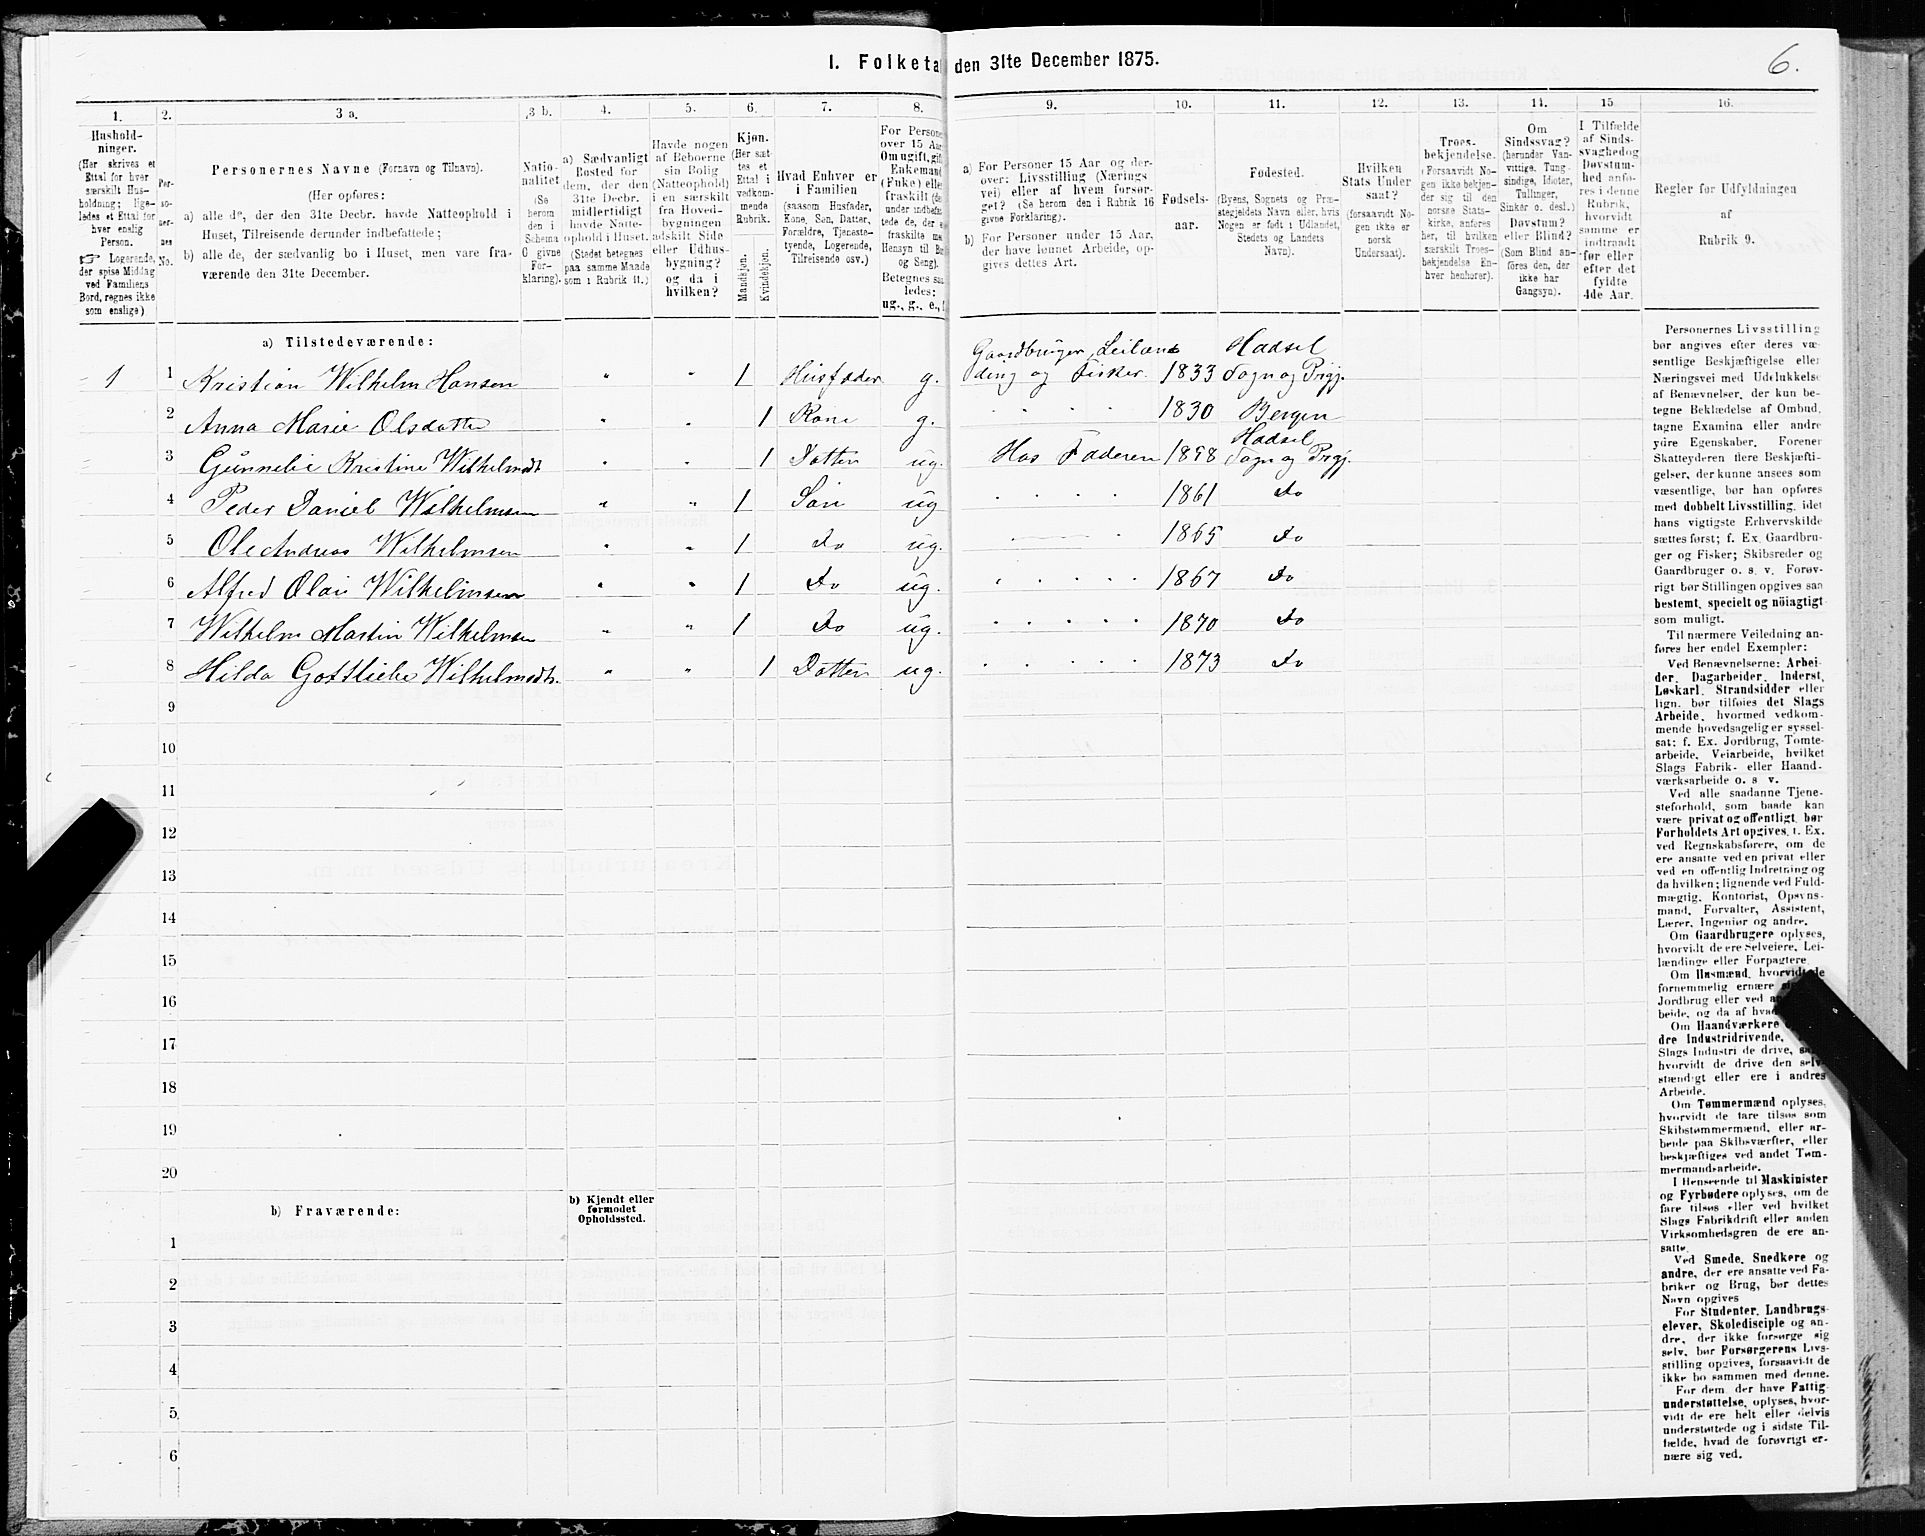 I. Folketa den 31te December 1875.
6.
1. 2. 3 a. 3 b. 4. 5. 6. 7. 8. 9. 10. 11. 12. 13. 14. 15 16.
Hushold-
ninger.
(Her skrives et
Ettal for hver
særskilt Hus-
holdning; lige-
ledes et Ettal for
hver enslig
Person.
Logerende,
der spise Middag
ved Familiens
Bord, regnes ikke
som enslige)
Per-
so-
ner-
nes
No.
Personernes Navne (Fornavn og Tilnavn).
(Her opføres:
a) alle de, der den 31te Decbr. havde Natteophold i
Huset, Tilreisende derunder indbefattede;
b) alle de, der sædvanlig bo i Huset, men vare fra-
værende den 31te December.
Natio-
nalitet
(Se
herom
den i
Schema
O givne
For-
klaring).
a) Sædvanligt
Bosted for
dem, der den
31te Decbr.
midlertidigt
havde Natte-
ophold i Huset.
(Stedet betegnes
paa samme Maade
som i Rubrik 11.)
Havde nogen
af Beboerne
sin Bolig
(Natteophold)
i en særskilt
fra Hoved-
bygningen
adskilt Side
eller Udhus-
bygning?
og da i
hvilken?
Kjøn.
(Her sæt-
tes et
Ettal i
vedkom-
mende
Rubrik.
Mandkjøn.
Kvindekjøn.
Hvad Enhver er
i Familien
(saasom Husfader,
Kone, Søn, Datter,
Forældre, Tjeneste-
tyende, Logerende,
Tilreisende osv.)
For Persone
over 15 Aar
Om ugift, gif
Enkemand
(Enke) elle
fraskilt (de
under indbefat
tede de, der e
fraskilte me
Hensyn til Bo
og Seng).
Betegnes saa
ledes:
ug., g., e.,
a) For Personer 15 Aar og der-
over: Livsstilling (Nærings
vei) eller af hvem forsør-
get? (Se herom den i Rubrik 16
givne Forklaring).
b) For Personer under 15 Aar,
der have lønnet Arbeide, op-
gives dettes Art.
Fødsels-
aar.
Fødested.
(Byens, Sognets og Præ-
stegjeldets Navn eller, hvis
Nogen er født i Udlandet,
Stedets og Landets
Navn).
Hvilken
Stats Under
saat?
(forsaavidt No-
gen ikke er
norsk
Undersaat).
Troes-
bekjendelse.
(Forsaavidt No-
gen ikke bekjen-
der sig til den
norske Stats-
kirke, anføres
her, til hvilken
særskilt Troes-
bekjendelse En-
hver henhører).
Om
Sindssvag?
(herunder Van-
vittige, Tung-
sindige, Idioter,
Tullinger,
Sinker o. desl.)
Døvstum?
eller Blind?
(Som Blind an-
føres den, der
ikke har
Gangsyn).
I Tilfælde
af Sinds-
svaghed og
Døvstum-
hed anfø-
res i denne
Rubrik,
hvorvidt
samme er
indtraadt
før eller
efter det
fyldte
4de Aar.
Regler for Udfyldningen
af
Rubrik 9.
a) Tilstedeværende:
Gaardbruger, Leilæn- Hadsel
1 1 Kristian Wilhelm Hansen " " 1 Husfader g. ding og Fisker. 1833 Sogn og Prgj.
2 Anna Marie Olsdatter " " 1 Kone g. 1830 Bergen
Hadsel
3 Gunnelie Kristine Wilhelmsdt " " 1 Datter ug. Hos Faderen 1858 Sogn og Prgj.
4 Peder Daniel Wilhelmsen " " 1 Søn ug 1861 do
5 Ole Andreas Wilhelmsen " " 1 do ug. 1865 do
6 Alfred Olai Wilhelmsen " " 1 do ug. 1867 do
7 Wilhelm Martin Wilhelmsen " " 1 do ug. 1870 do
8 Hilda Gottliebe Wilhelmsdt. " " 1 Datter ug. 1873 do
9
10
11
12
13
14
15
16
17
18
19
20
b) Fraværende:
b) Kjendt eller
formodet
Opholdssted.
1
2
3
4
5
6
Personernes Livsstilling
bør angives efter deres væ-
sentlige Beskjæftigelse eller
Næringsvei med Udelukkelse
af Benævnelser, der kun be-
tegne Beklædelse af Ombud,
tagne Examina eller andre
ydre Egenskaber. Forener
Skatteyderen flere Beskjæfti-
gelser, der kunne ansees som
væsentlige, bør han opføres
med dobbelt Livsstilling, idet
hans vigtigste Erhvervskilde
sættes først; f. Ex. Gaardbru-
ger og Fisker; Skibsreder og
Gaardbruger o. s. v. Forøv-
rigt bør Stillingen opgives saa
bestemt, specielt og nöiagtigt
som muligt.
Til nærmere Veiledning an-
føres her endel Exempler:
Ved Benævnelserne: Arbei-
der, Dagarbeider, Inderst,
Løskarl, Strandsidder eller
lign. bør tilføies det Slags
Arbeide, hvormed vedkom-
mende hovedsagelig er syssel-
sat; f. Ex. Jordbrug, Tomte-
arbeide, Veiarbeide, hvilket
Slags Fabrik- eller Haand-
værksarbeide o. s v.
Ved alle saadanne Tjene-
steforhold, som baade kan
være privat og offentligt, bør
Forholdets Art opgives, t. Ex.
ved Regnskabsførere, om de
ere ansatte ved en privat eller
ved en offentlig Indretning og
da hvilken; lignende ved Fuld-
mægtig, Kontorist, Opsyns-
mand, Forvalter, Assistent,
Lærer, Ingeniør og andre.
Om Gaardbrugere oplyses,
hvorvidt de ere Selveiere, Lei-
lændinge eller Forpagtere
Om Husmænd, hvorvidt de
fornemmelig ernære
Jordbrug eller ved
beide, og da af
Om Haandværkere
dre Industridrivende,
Slags Industri de drive,
hvorvidt de drive den selv-
stændigt eller ere i andres
Arbeide.
Om Tømmermænd oplyses,
hvorvidt de fare tilsøs som
Skibstømmermænd, eller ar-
beide paa Skibsværfter, eller
beskjæftiges ved andet Tøm-
mermandsarbeide.
I Henseende til Maskinister
og Fyrbødere oplyses, om de
fare tilsøs eller ved hvilket
Slags Fabrikdrift eller anden
Virksomhedsgren de ere an-
satte.
Ved Smede, Snedkere og
andre, der ere ansatte ved Fa-
briker og Brug, bør dettes
Navn opgives
For Studenter, Landbrugs-
elever, Skoledisciple og an-
dre, der ikke forsørge sig
selv, bør Forsørgerens Livs-
stilling opgives, forsaavidt de
ikke bo sammen med denne.
For dem, der have Fattig-
understøttelse, oplyses, hvor-
vidt de ere helt eller delvis
understøttede og i sidste Til-
fælde, hvad de forøvrigt er-
nære sig ved.